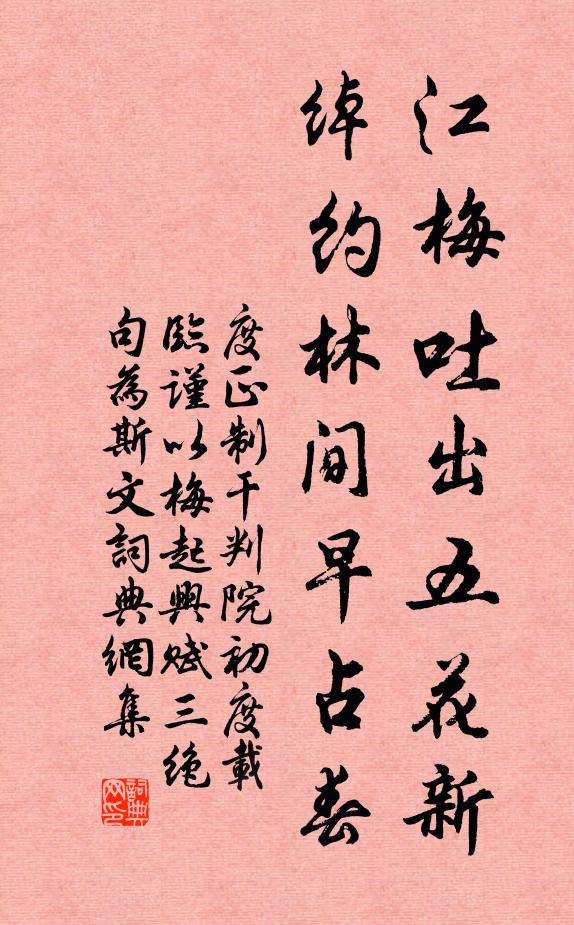 江梅吐出五花新
绰约林间早占春
度正制干判院初度载
临谨以梅起興赋三绝
句為斯文詞典網集
詞典
网印